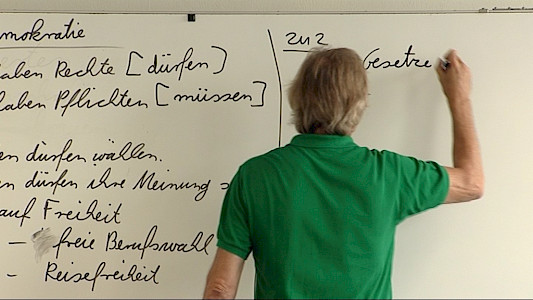 mokratie
aben Rechte [dürfen]
aben Pflichten [müssen]
en dürfen wählen.
en dürfen ihre Meinung
auf Freiheit
– freie Berufswahl
– Reisefreiheit
zu 2
Gesetze